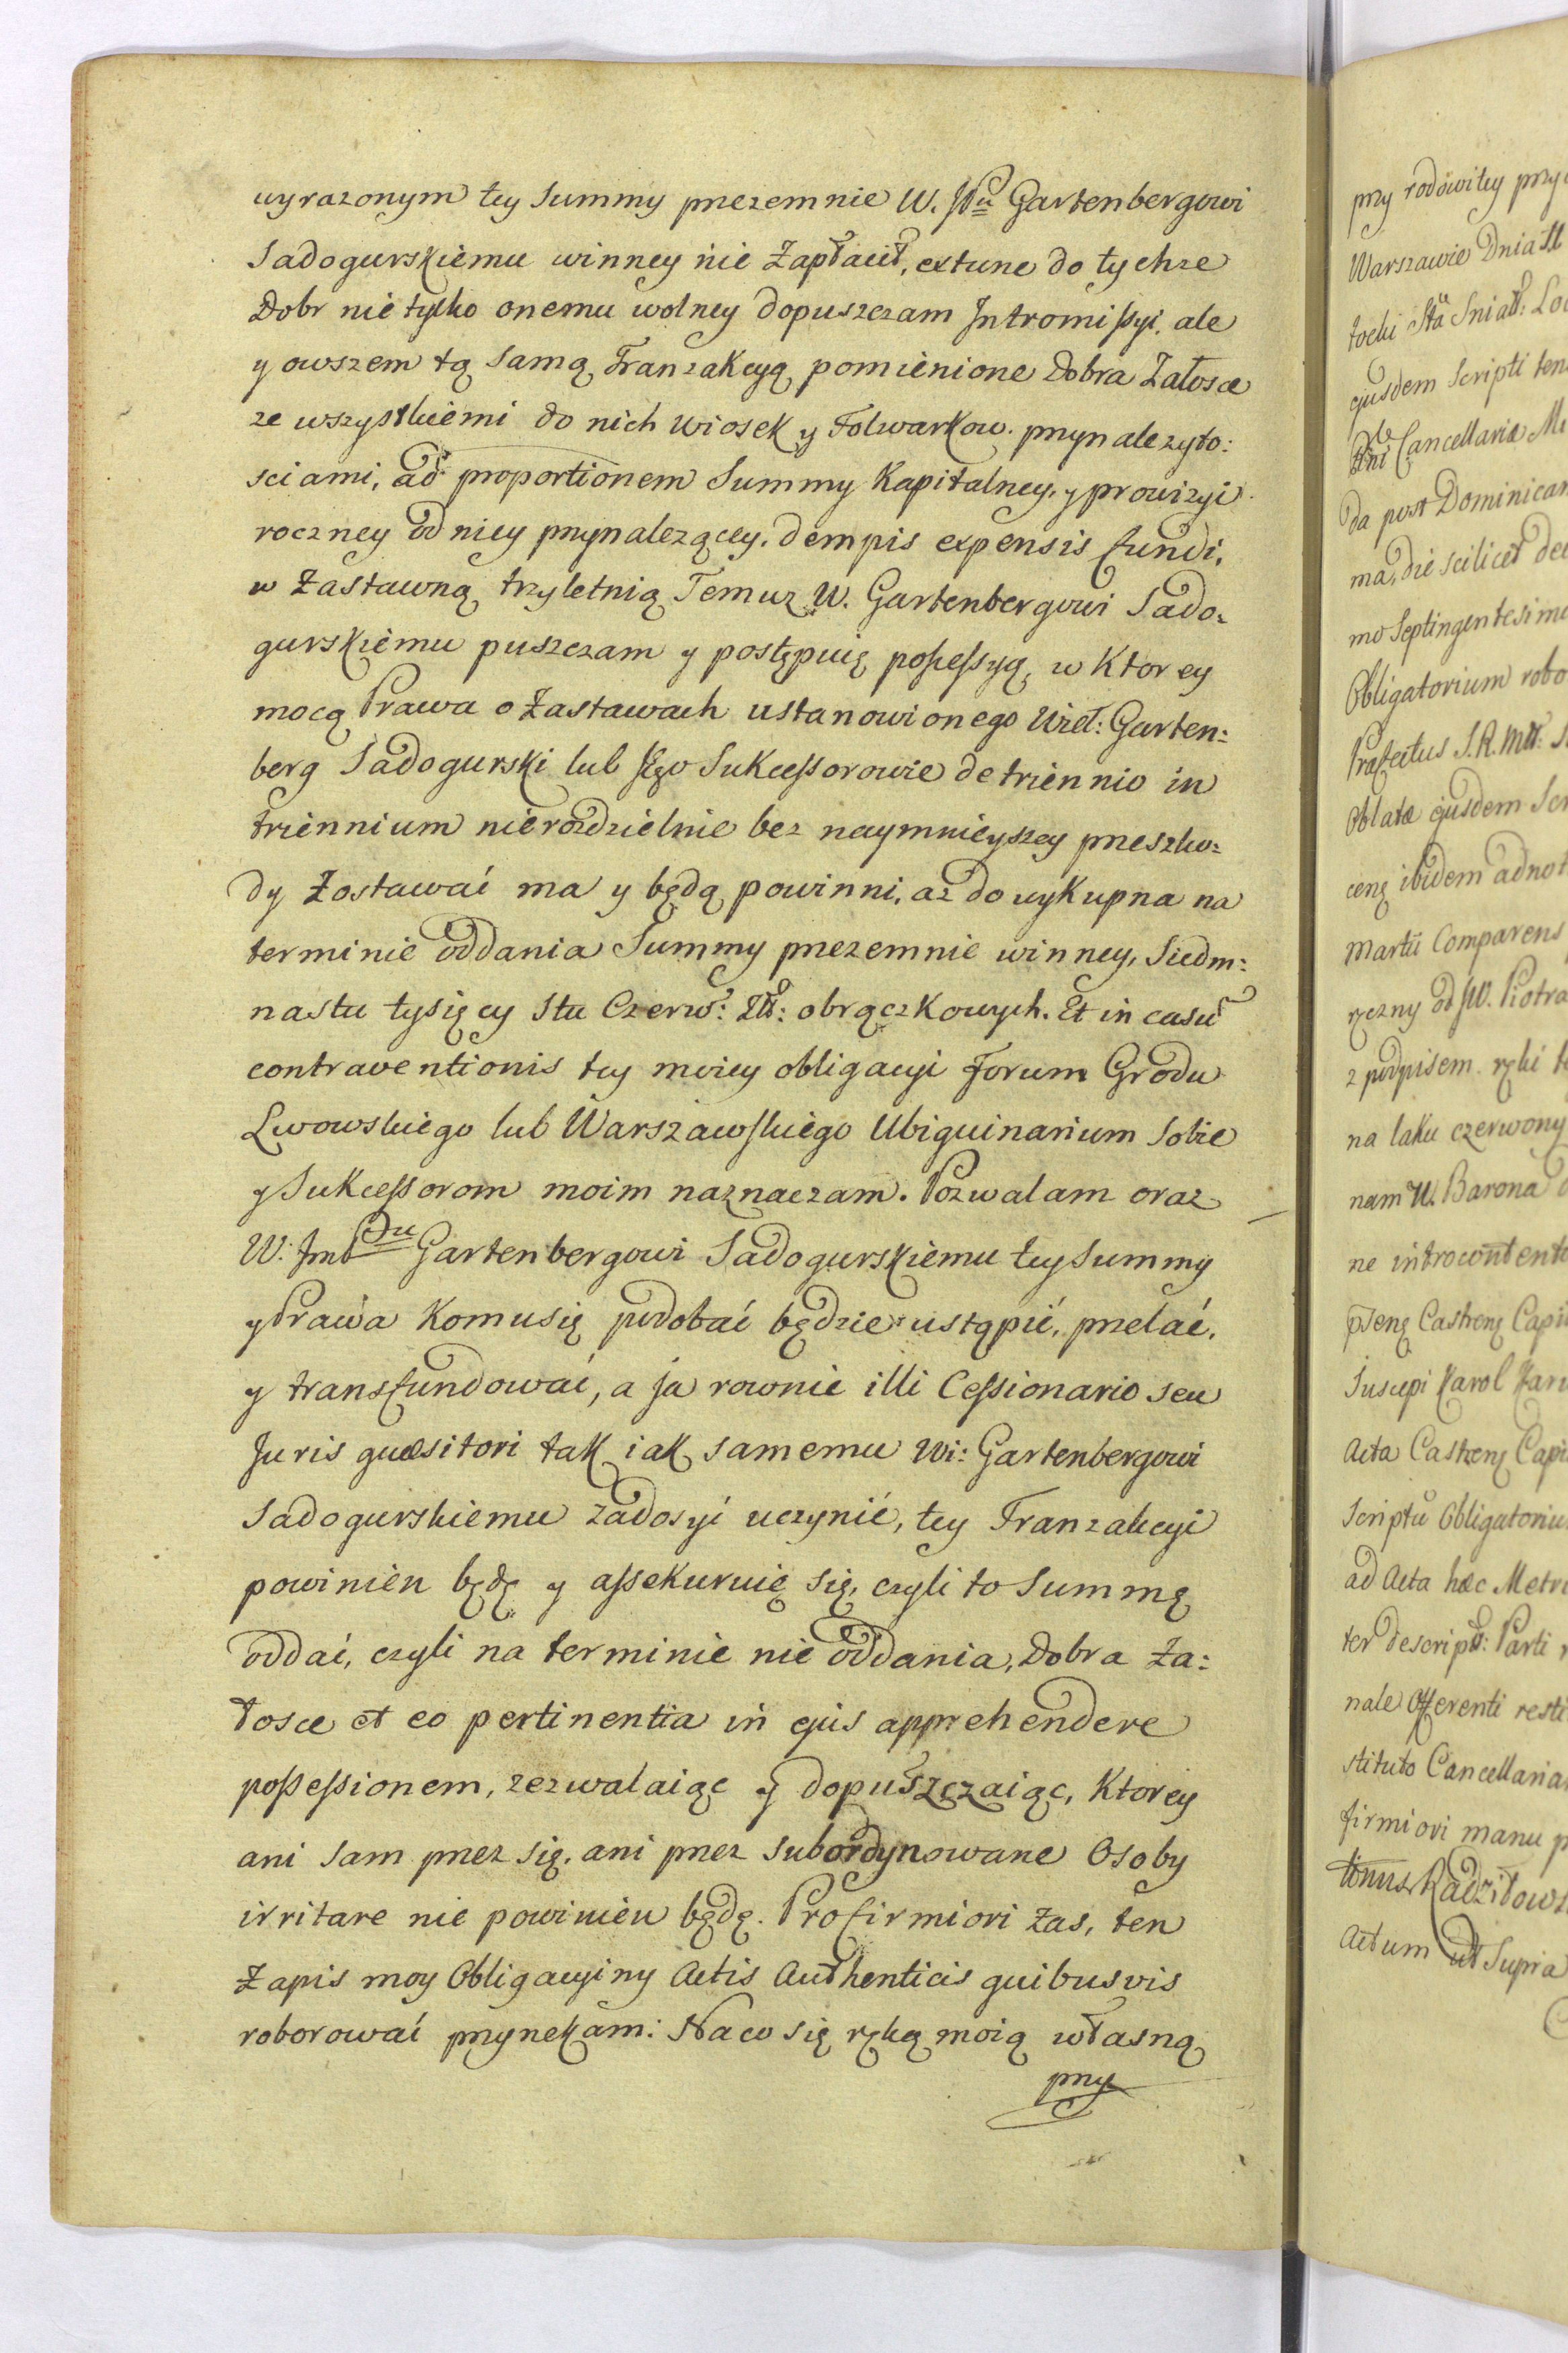 wyrazonym tey Summy przezemnie W. JPu Gartenbergowi
Sadogurskiemu winney nie Zapłacił, extunc do tychze
Dobr nie tylko onemu wolney dopuszczam Jntromissyi, ale
y owszem tą samą Tranzakcyą pomienione Dobra Załosce
ze wszystkiemi do nich Wiosek y Folwarkow przynalezyto:
sciami, ad proportionem Summy Kapitalney, y prowizyi
roczney od niey przynalezącey, dempis expensis fundi,
w Zastawną trzyletnią Temuz W. Gartenbergowi Sado:
gurskiemu puszczam y postępuię possessyą, w Ktorey
mocą Prawa o Zastawach ustanowionego Wiel: Garten:
berg Sadogurski lub Jego Sukcessorowie de triennio in
triennium nierozdzielnie bez naymnieyszey przeszko:
dy Zostawać ma y będą powinni, az do wykupna na
terminie oddania Summy przezemnie winney, Siedm:
nastu tysięcy Stu Czerw: Zł: obrączkowych. Et in casu
contraventionis tey moiey obligacyi Forum Grodu
Lwowskiego lub Warszawskiego Ubiquinarium Sobie
y Sukcessorom moim naznaczam. Pozwalam oraz
W: Jmć Pu Gartenbergowi Sadogurskiemu tey Summy
y Prawa Komu się podobać będzie ustąpić, przelać,
y transfundować, a ja rownie illi Cessionario seu
Juris quæsitori tak iak samemu Wi: Gartenbergowi
Sadogurskiemu zadosyć uczynić, tey Tranzakcyi
powinien będę y assekuruię się, czyli to Summę
oddać, czyli na terminie nie oddania, Dobra Za:
łosce et eo pertinentia in ejus apprehendere
possessionem, zezwalaiąc y dopuszczaiąc, Ktorey
ani sam przez się, ani przez subordynowane Osoby
irritare nie powinien będę. Pro firmiori Zas, ten
Zapis moy Obligacyiny Actis Authenticis quibusvis
roborować przyrzekam: Na co się ręką moią własną
przy
przy rodowitey przy
Warszawie Dnia
tocki Sta Sniat:
ejusdem Scripti
Cancellariæ
da post Dominicam
ma, die scilicet
mo Septingentesimo
Obligatorium
Præfectus S.R.
Oblatæ ejusdem
ibidem
Martii Comparens
ręczny od JW. Piotra
z podpisem ręki
na laku czerwony
nam W. Barona
ne introcontent
Castren Capit
Suscepi Karol
Acta Castren
Scriptu Obligatoriu
ad Acta hæc Metri
ter descript: Parti
nale Offerenti resti
stituto Cancellaria
firmiori manu
Radziłows
Actum ut Supra